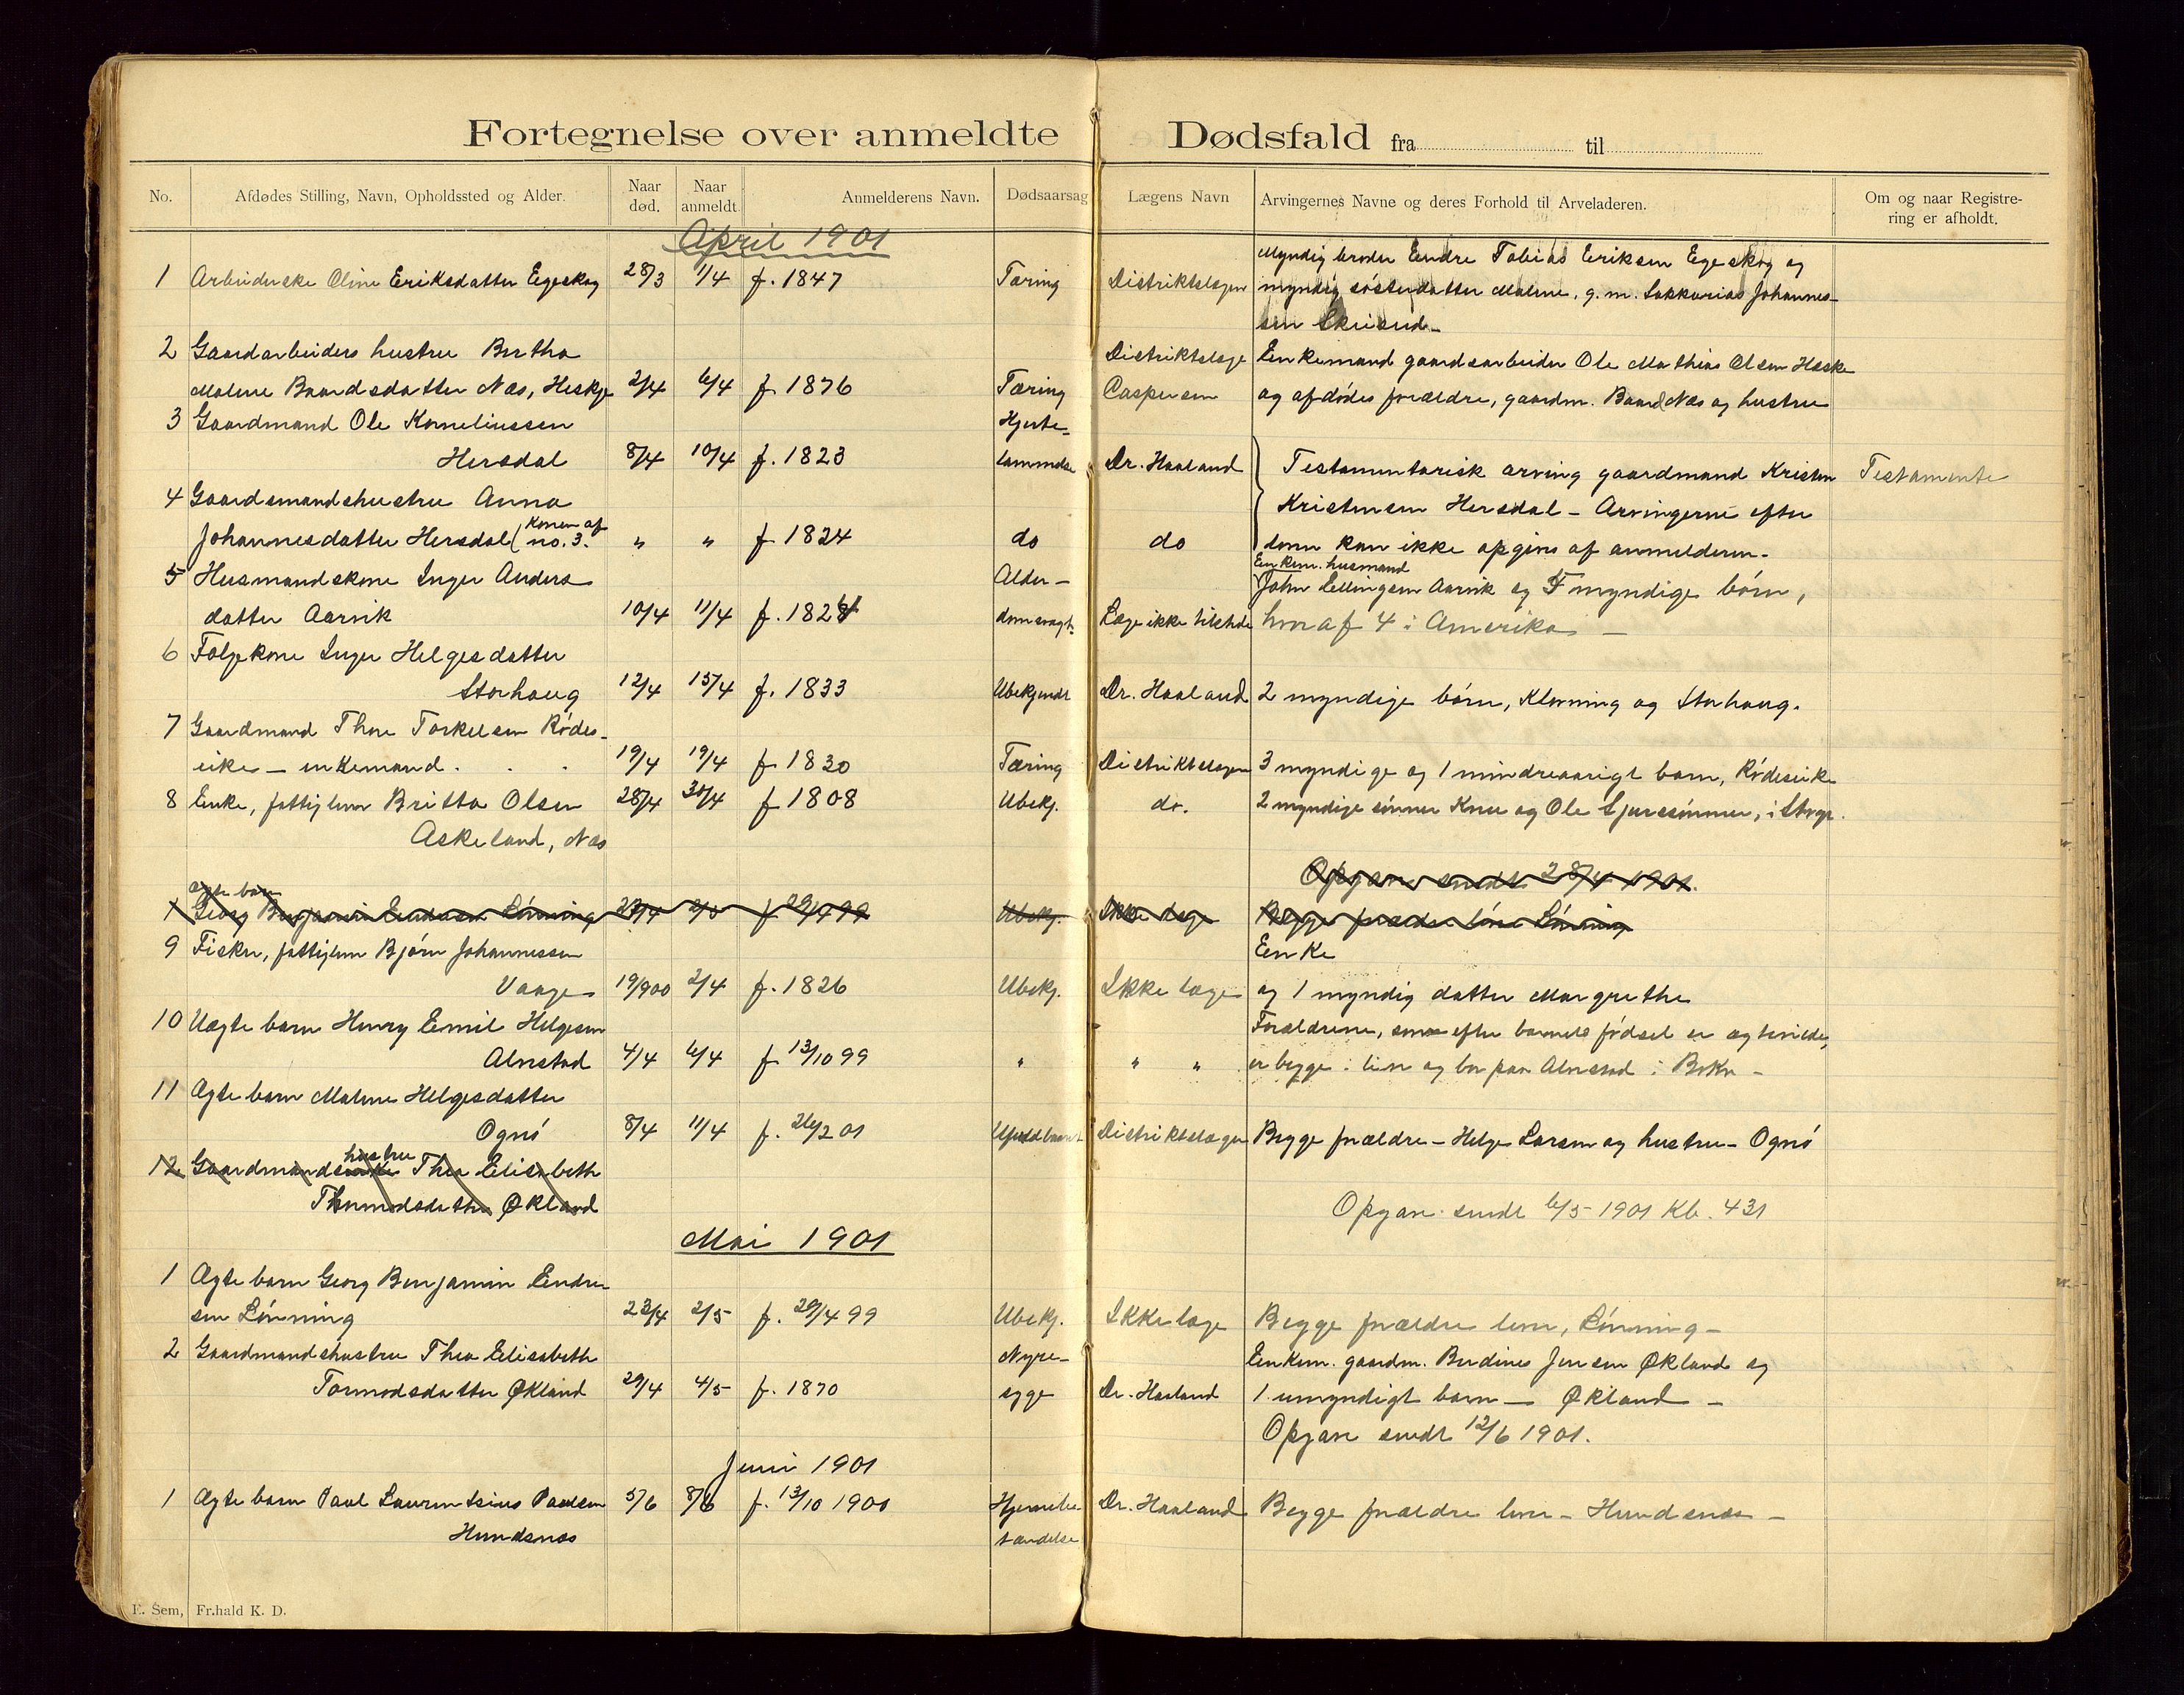 Fortegnelse over anmeldte Dødsfald fra til
No. Afdødes Stilling, Navn, Opholdssted og Alder. Naar død. Naar anmeldt. Anmelderens Navn. Dødsaarsag Lægens Navn Arvingernes Navne og deres Forhold til Arveladeren. Om og naar Registrering er afholdt.
April 1901
Myndig broder Endre Tobias Eriksen Egeskog og
1 Arbeiderske Oline Eriksdatter Egeskog 28/3 1/4 f. 1847 Tæring Distriktslægen myndig søsterdatter Malene, g. m. Sakkarias Johannes-
sen Skeiseid
2 Gaardarbeiders hustru Bertha Distriktslæge Enkemand gaardsarbeider Ole Mathias Olsen Heske
Malene Baardsdatter Næs, Heskje 2/4 6/4 f. 1876 Tæring Caspersen og afdødes forældre, gaardm. Baard Næs og hustru
3 Gaardmand Ole Korneliussen Hjerte-
Hersdal 8/4 10/4 f. 1823 lammelse Dr. Haaland Testamentarisk arving gaardmand Kristen Testamente
4 Gaardsmandshustru Anna Kristensen Hersdal - Arvingerne efter
Johannesdatter Hersdal (Konen af no. 3. " " f 1824 do do loven kan ikke opgives af anmelderen.
5 Husmandskone Inger Anders Alder- Enkem. husmand John Ellingsen Aarvik og 7 myndige børn,
datter Aarvik 10/4 11/4 f. 1824 domsvagh. Læge ikke tilstede hvoraf 4 i Amerika -
6 Følgekone Inger Helgesdatter
Storhaug 12/4 15/4 f. 1833 Ubekjendt Dr. Haaland 2 myndige børn, Klovning og Storhaug.
7 Gaardmand Thore Torkelsen Rødes-
eike - enkemand. 19/4 19/4 f. 1830 Tæring Distriktslægen 3 myndige og 1 mindreaarigt barn, Rødeseike
8 Enke, fattiglem Britta Olsen 28/4 30/4 f 1808 Ubekj. do. 2 myndige sønner Knu og Ole Sjursønner, i Skogn.
Askeland, Næs
Opgave sendt 28/4 1901.
Ægte barn
1 Georg Benjamin Endresen Lønning 23/4 2/5 f. 29/4 99 Ubekj. Ikke læge Begge forældre leve Lønning
9 Fisker, fattiglem Bjørn Johannessen Enke
Vaage 19/9 00 2/4 f. 1826 Ubekj. Ikke læge og 1 myndig datter Margrethe
10 Uægte barn Henry Emil Helgesen Forældrene, som efter barnets fødsel er ægteviede,
Alvestad 4/4 6/4 f 13/10 99 " " " er begge i live og bor paa Alvestad i Bokn -
11 Ægte barn Malene Helgesdatter
Ognø 8/4 11/4 f. 26/2 01 Distriktslægen Begge forældre - Helge Larsen og hustru - Ognø
12 Gaardmandsenke hustru Thea Elisabeth
Thormodsdatter Økland Opgave sendt 6/5 1901 Kb. 431
Mai 1901
1 Ægte barn Georg Benjamin Endre-
sen Lønning 23/4 2/5 f. 29/4 99 Ubekj. Ikke læge Begge forældre leve, Lønning -
2 Gaardmandshustru Thea Elisabeth Nyre- Enkem. gaardm. Berdines Jensen Økland og
Tormodsdatter Økland 29/4 4/5 f. 1870 syge Dr. Haaland 1 umyndigt barn - Økland -
Opgave sendt 12/6 1901.
Juni 1901
1 Ægte barn Paul Laurentsius Paulsen 5/6 8/6 f. 13/10 1900 Hjernebe- Dr. Haaland Begge forældre leve - Hundsnæs -
Hundsnæs tændelse
E. Sem, Fr.hald K. D.